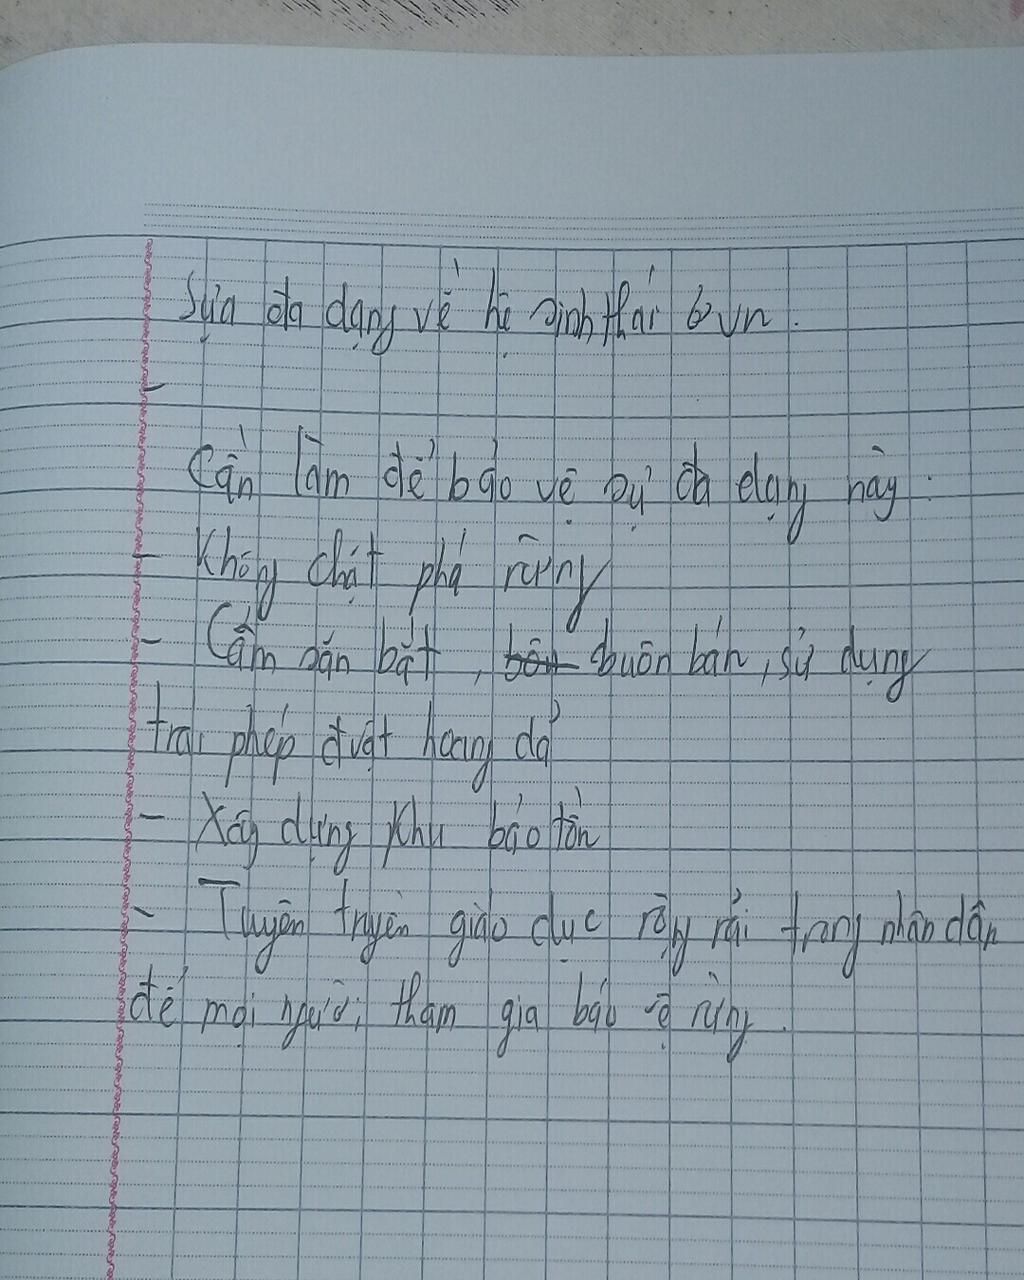 Sựa đa dạng về hệ sinh thái ở vn.
-
Cần làm để bảo vệ sự đa dạng này:
- Không chặt phá rừng
- Cấm săn bắt, buôn bán, sử dụng
trai phép đ vật hoang dã
- Xây dựng khu bảo tồn
- Tuyên truyền giáo dục rộng rải trong nhân dân
để mọi người tham gia bảo vệ rừng.